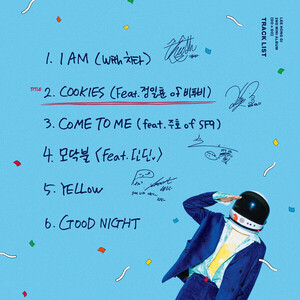 LEE HONG GI
2ND MINI ALBUM
[DO n DO]
TRACK LIST
1. I AM (With 차타)
TITLE 2. COOKIES (Feat. 정일훈 of 비투비)
3. COME TO ME (feat. 주호 of SF9)
4. 모닥불 (feat. 딘딘)
5. YELLOW
6. GOOD NIGHT